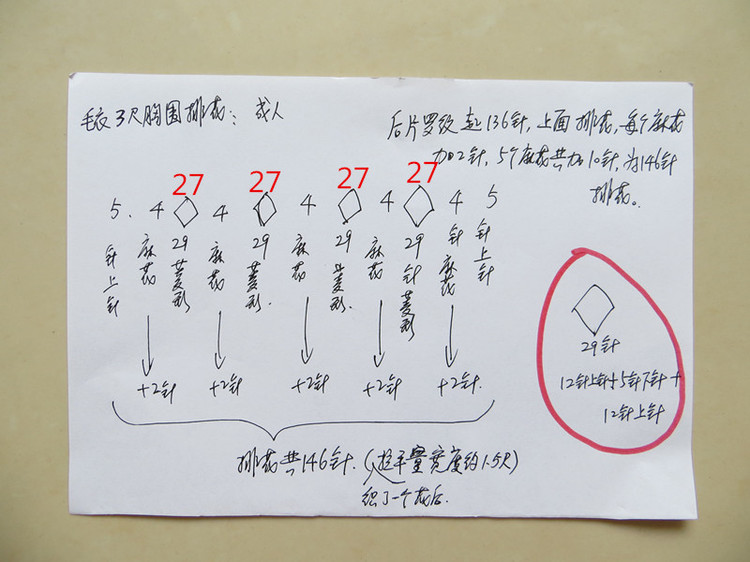 毛衣3尺胸围排花：成人
后片罗纹起136针，上面排花，每个麻花
加2针，5个麻花共加10针，为146针
排花。
27 27 27 27
5. 4 4 4 4 4 5
针上针 麻花 29菱形 麻花 29菱形. 麻花 29菱形. 麻花 29针菱形 针麻花 针上针
+2针 +2针 +2针 +2针 +2针.
排花共146针.（拉平量宽度约1.5尺）
织了一个花后.
29针
12针上针+5针下针+
12针上针